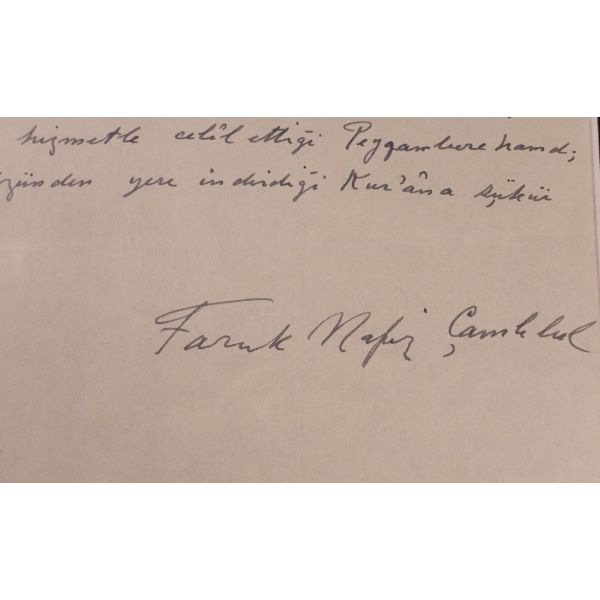 hizmetle celîl ettiği Peygambere hamd;
yere indirdiği Kur'âna şükür
Faruk Nafiz Çamlıbel